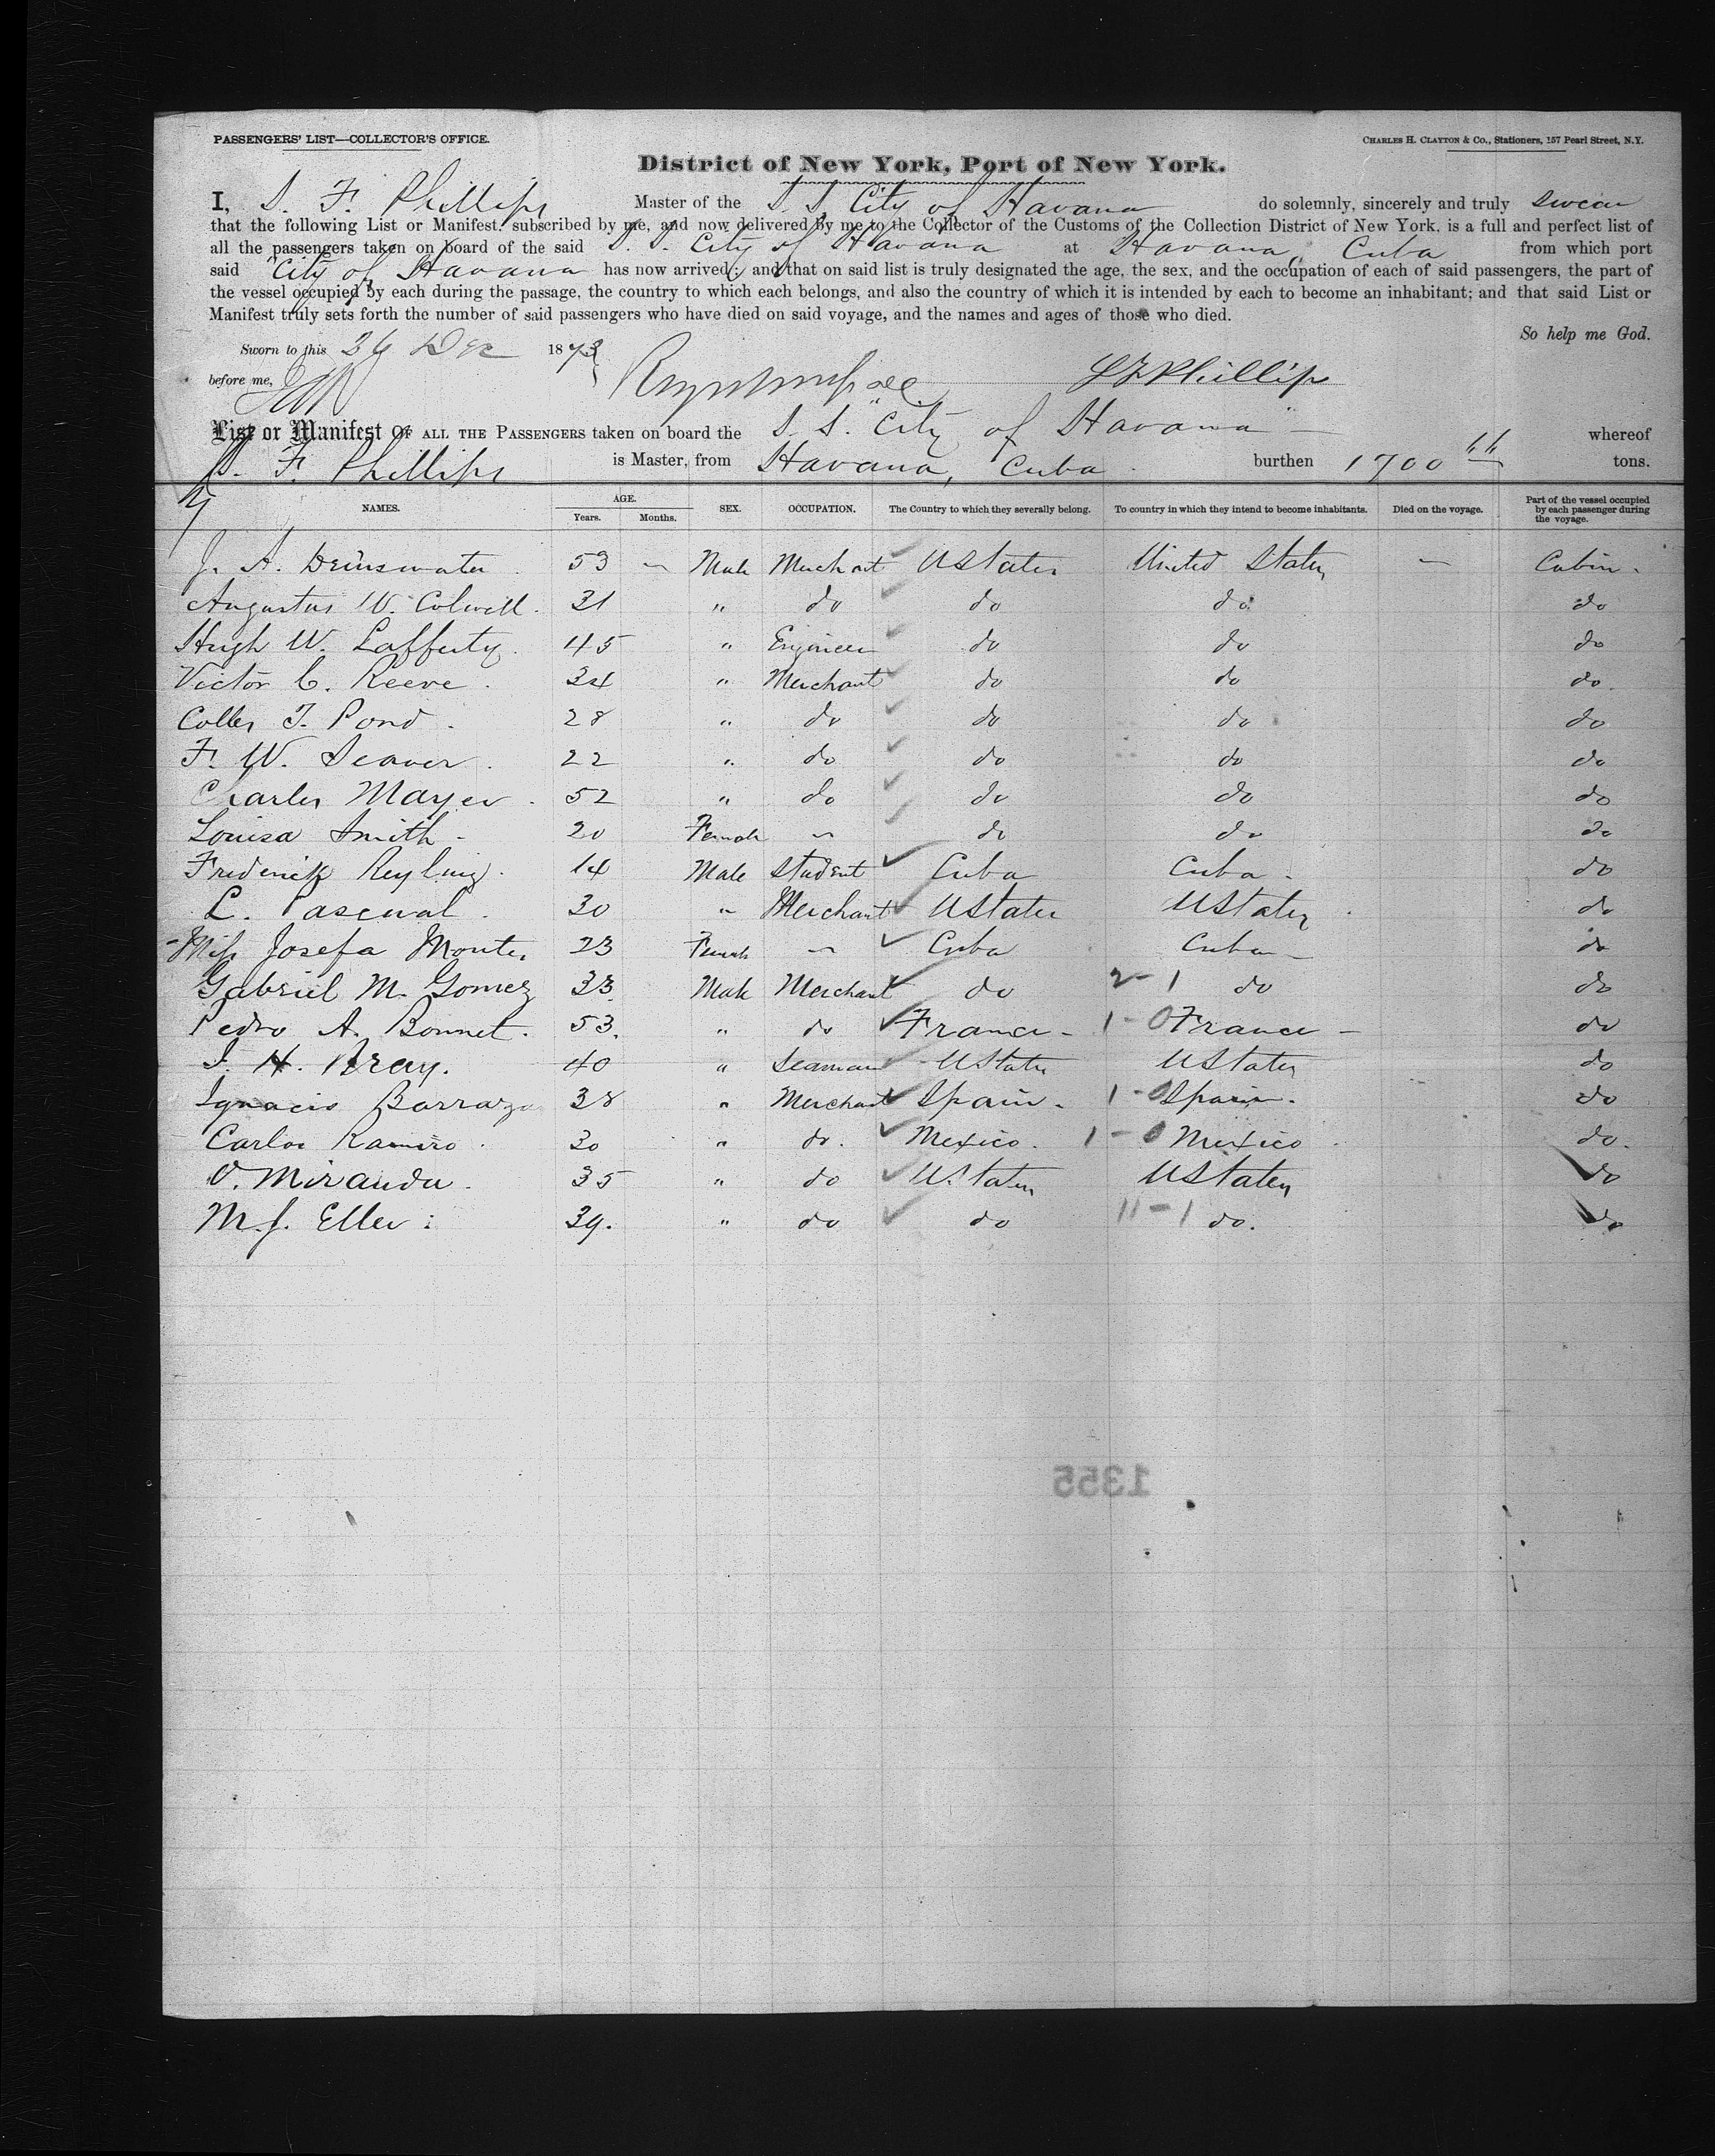 PASSENGERS' LIST—COLLECTOR'S OFFICE.
CHARLES H. CLAYTON & Co., Stationers, 157 Pearl Street, N.Y.
District of New York, Port of New York.
I, S. F. Phillips Master of the S. S. City of Havana do solemnly, sincerely and truly swear
that the following List or Manifest, subscribed by me, and now delivered by me to the Collector of the Customs of the Collection District of New York, is a full and perfect list of
all the passengers taken on board of the said S. S. City of Havana at Havana, Cuba from which port
said "City of Havana has now arrived; and that on said list is truly designated the age, the sex, and the occupation of each of said passengers, the part of
the vessel occupied by each during the passage, the country to which each belongs, and also the country of which it is intended by each to become an inhabitant; and that said List or
Manifest truly sets forth the number of said passengers who have died on said voyage, and the names and ages of those who died.
So help me God.
Sworn to this 26 Dec 1873
before me, S F Phillips
List or Manifest OF ALL THE PASSENGERS taken on board the S. S. "City of Havana" whereof
S. F. Phillips is Master, from Havana, Cuba burthen 1700 tons.
NAMES. AGE. Years. Months. SEX. OCCUPATION. The Country to which they severally belong. To country in which they intend to become inhabitants. Died on the voyage. Part of the vessel occupied by each passenger during the voyage.
J. A. 53 — Male Merchant UStates United States — Cabin.
Augustus W. Colwell. 31 " do do do do
Hugh W. Lafferty. 45 " Engineer do do do
Victor C. Reeve. 34 " Merchant do do do.
Colles T. Pond. 28 " do do do do
F. W. Seaver. 22 " do do do do
Charles Mayer. 52 " do do do do
Louisa Smith - 20 Female — do do do
Frederick Reyling. 14 Male Student Cuba Cuba - do
L. Pascual. 30 " Merchant UStates UStates do
Miss Josefa Montes 23 Female — Cuba Cuba — do
Gabriel M. Gomez 33 Male Merchant do 2-1 do do
Pedro A. Bonnet. 53. " do France - 1-0 France - do
I. H. Bray. 40 " Seaman UStates UStates do
Ignacio Barraza 38 " Merchant Spain. 1-0 Spain. do
Carlos Ramiro. 30 " do. Mexico. 1-0 Mexico do.
O. Miranda. 35 " do U.States UStates do
M. J. Eller: 39. " do do 11-1 do. do
1355